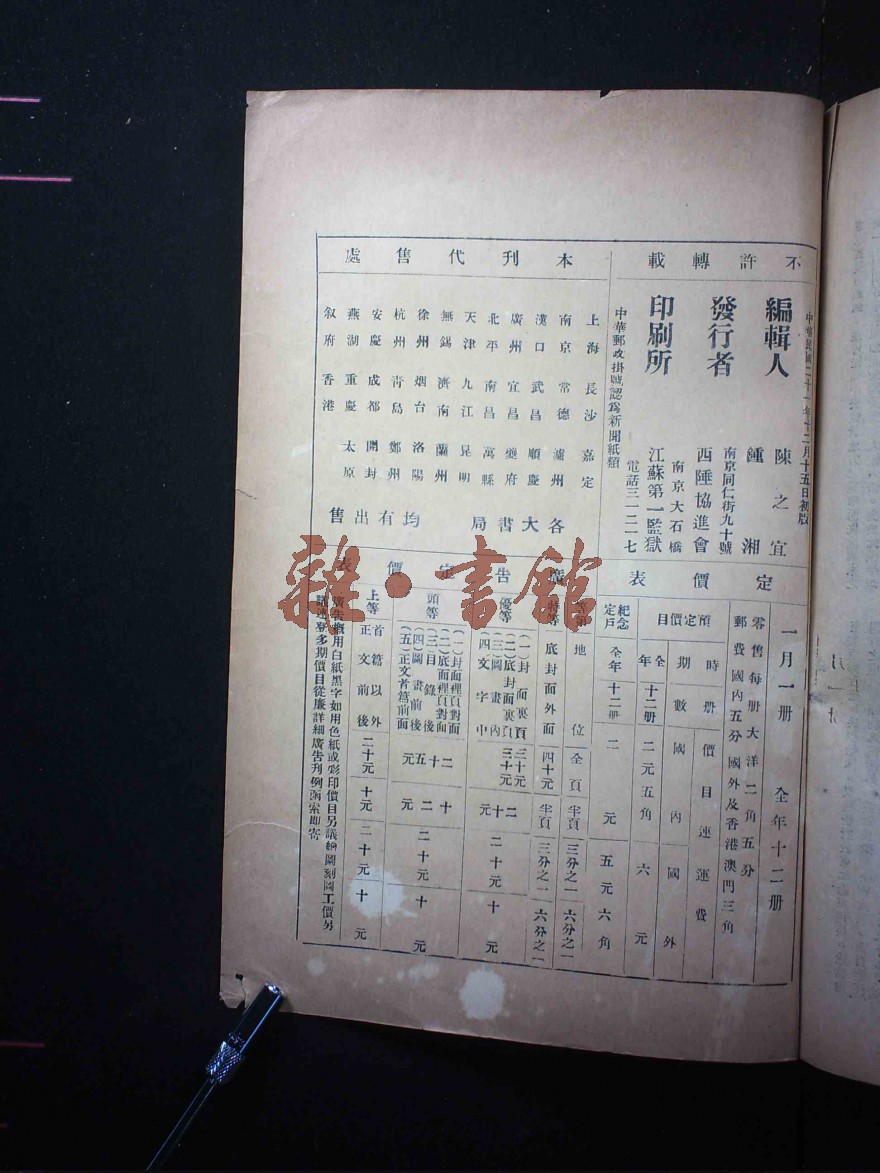 不許轉載
中華民國二十一年十二月十五日初版
編輯人 陳之宜
鍾湘
南京同仁街九十號
發行者 西陲協進會
南京大石橋
印刷所 江蘇第一監獄
電話三一二一七
中華郵政掛號認爲新聞紙類
本刊代售處
上海 長沙 嘉定
南京 常德 瀘州
漢口 武昌 順慶
廣州 宜昌 夔府
北平 南昌 萬縣
天津 九江 昆明
無錫 濟南 蘭州
徐州 烟台 洛陽
杭州 青島 鄭州
安慶 成都 開封
蕪湖 重慶 太原
叙府 香港
各大書局均有出售
定價表
一月一册 全年十二册
零售每册大洋二角五分
郵費國內五分國外及香港澳門三角
預定價目
時期 册數 價目連運費
國內 國外
全年 十二册 二元五角 六元
紀念定戶 全年十二册 二元 五元六角
廣告定價表
等第 地位 全頁 半頁 三分之二 六分之一
特等 底封面外面 四十元 半頁 三分之二 六分之一
優等
(一)封面裏頁 三十元
(二)底封面裏頁 三十元
(三)圖畫內
(四)文字中
二十元 二十元 十元
頭等
(一)封面裡頁對面
(二)底面裡頁對面
(三)目錄後
(四)圖畫前後
(五)正文首篇前面
二十五元 十二元 二十元 十元
上等
首篇以外
正文前後
二十元 十元 二十元 十元
廣告概用白紙黑字如用色紙或彩印價目另議繪圖刻圖工價另
議連登多期價目從廉詳細廣告刊例函索即寄
雜·書館